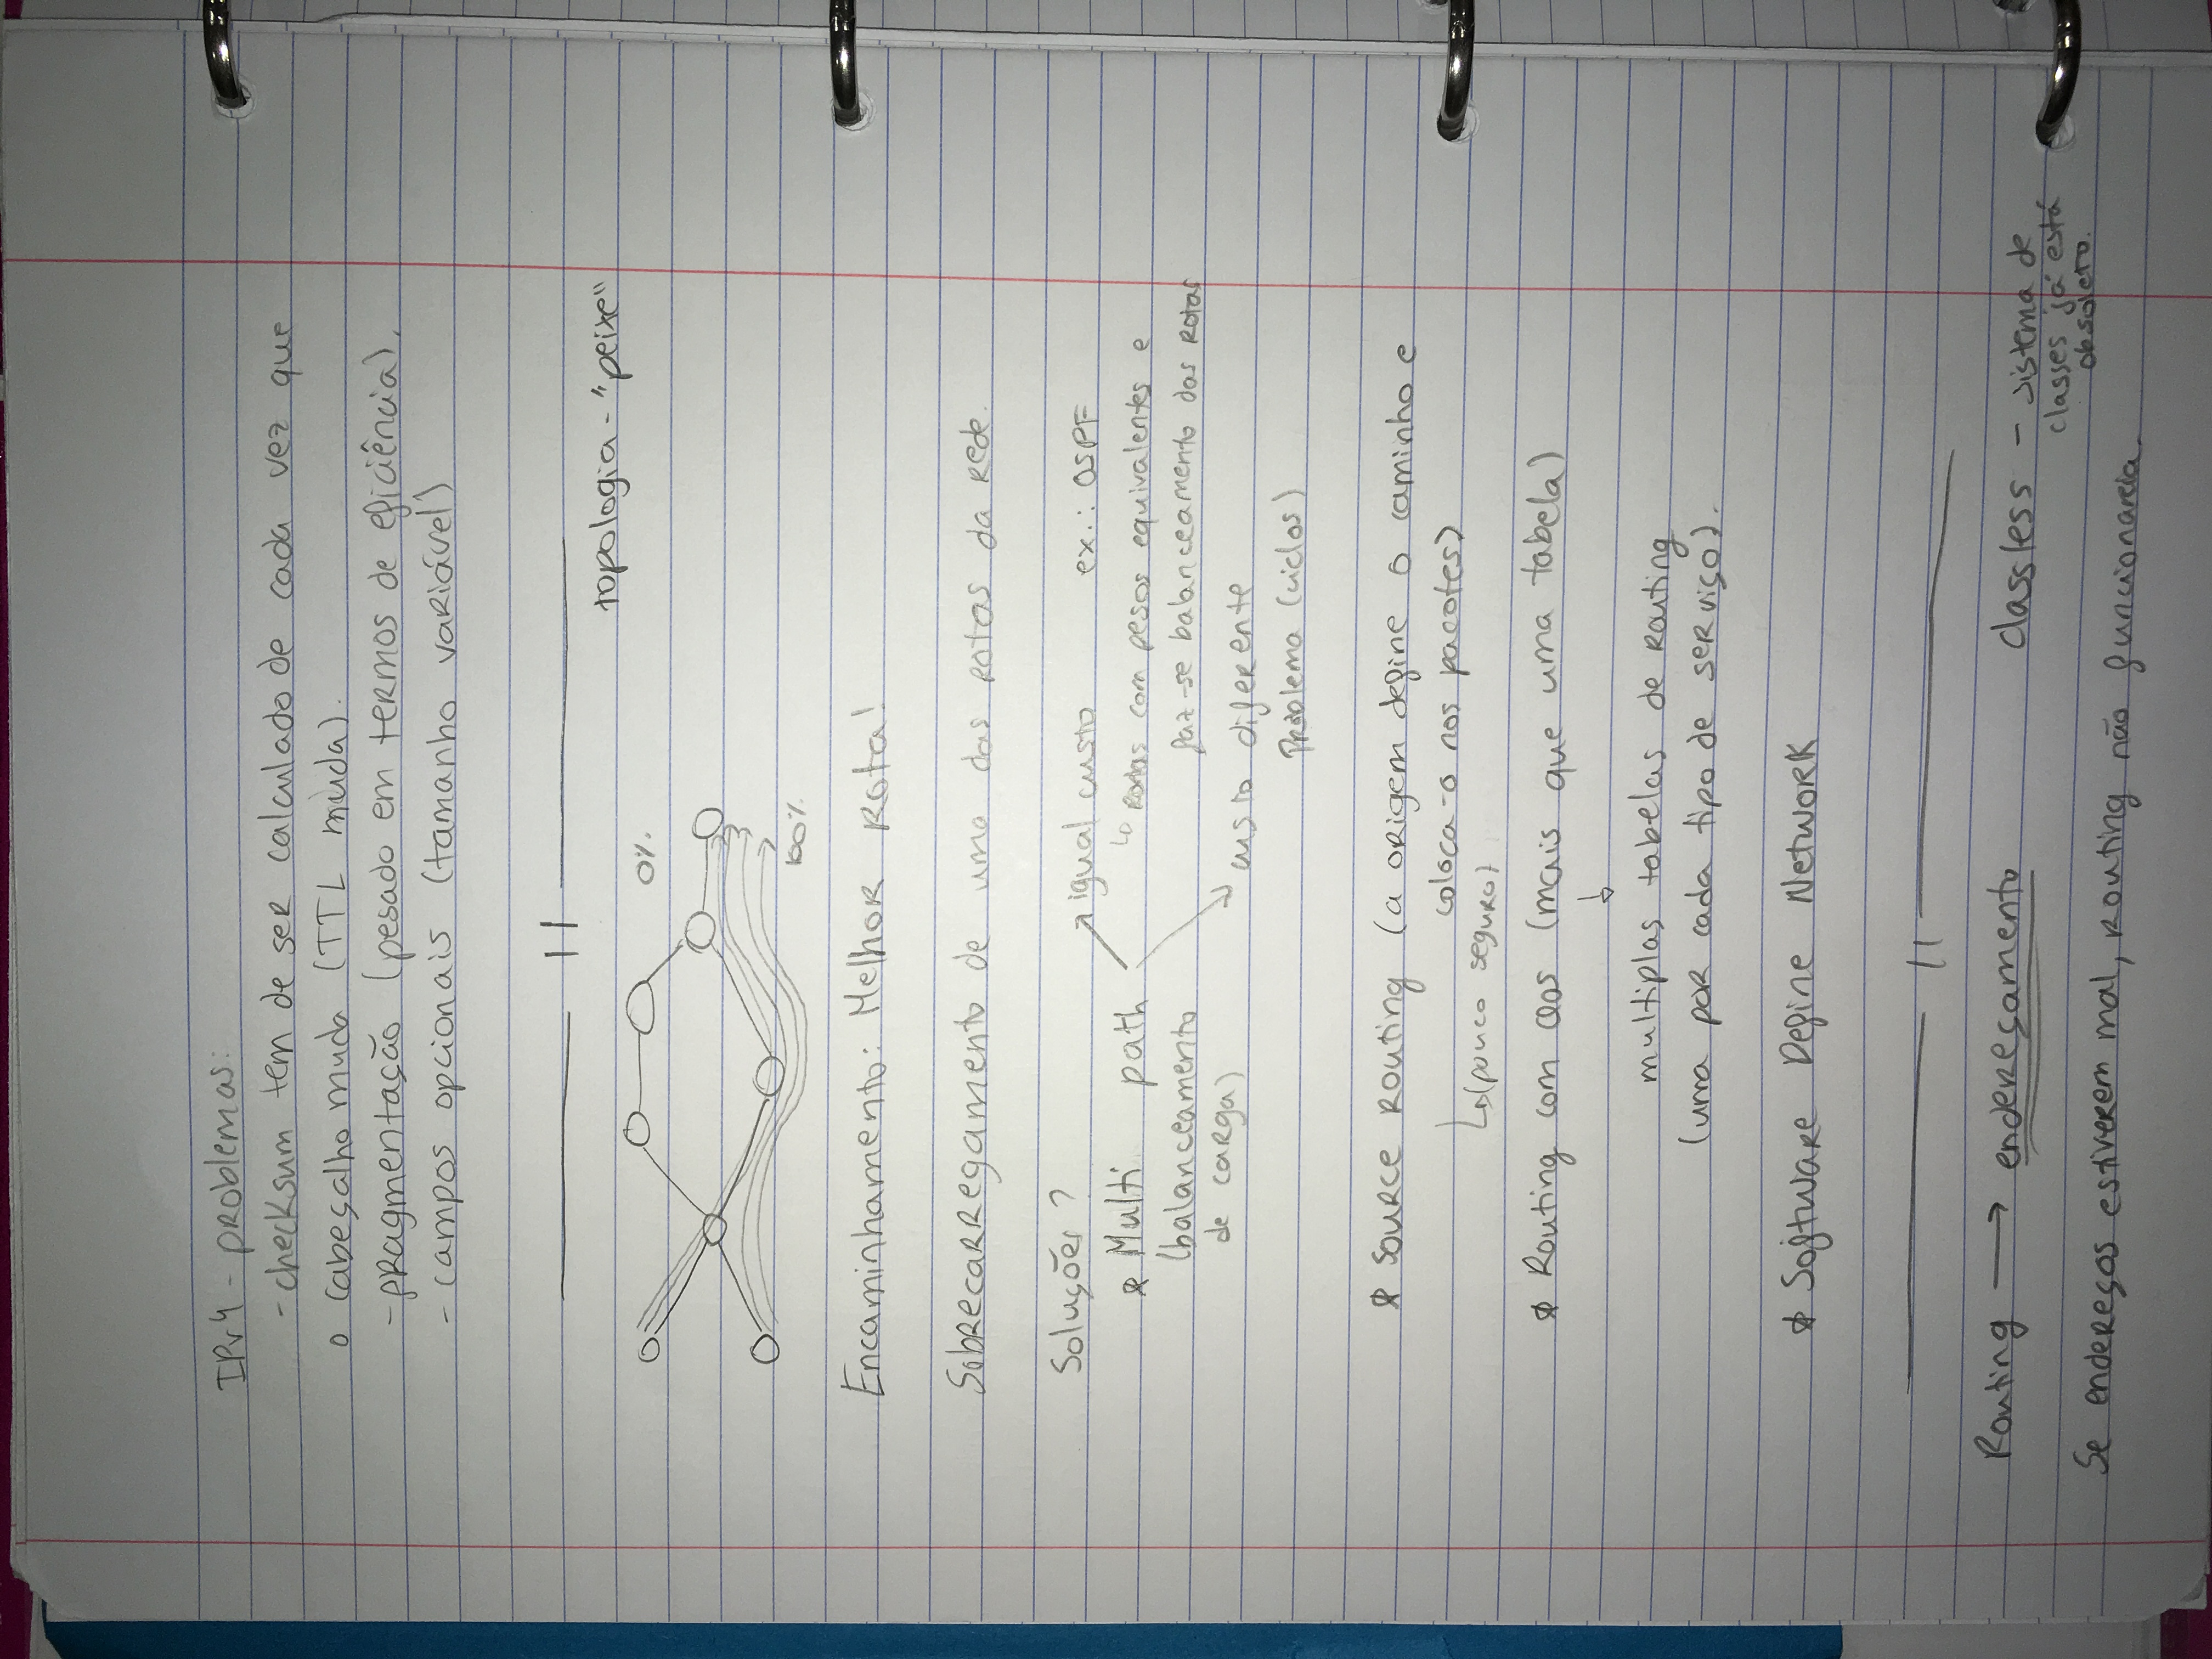 IPv4 - problemas:
- checksum tem de ser calculado de cada vez que
o cabeçalho muda (TTL muda).
- fragmentação (pesado em termos de eficiência).
- campos opcionais (tamanho variável)
topologia - "peixe"
0%.
100%.
Encaminhamento: Melhor Rota!
Sobrecarregamento de uma das rotas da rede.
Soluções?
igual custo ex.: OSPF
* Multi path
↳ Rotas com pesos equivalentes e
(balanceamento
faz-se balanceamento das rotas
de carga)
custo diferente
Problema (ciclos)
* Source Routing (a origem define o caminho e
coloca-o nos pacotes)
↳ (pouco seguro)
* Routing com QoS (mais que uma tabela)
↓
multiplas tabelas de Routing
(uma por cada tipo de serviço).
* Software Define Network
Routing → endereçamento classless - sistema de
classes já está
obsoleto.
Se endereços estiverem mal, routing não funcionaria.